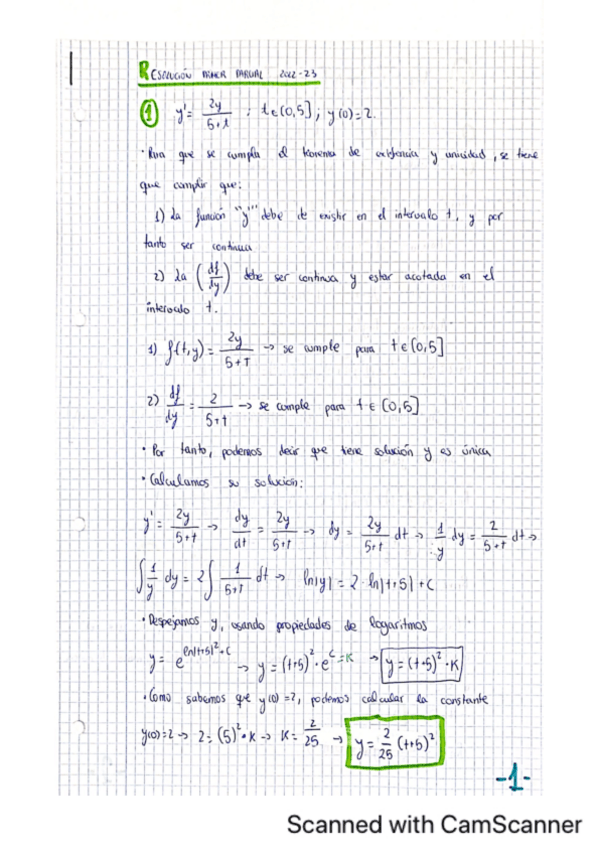 RESOLUCIÓN PRIMER PARCIAL 2022-23
1 y' = 2y/(5+t) ; t ∈ [0,5] ; y(0)=2.
· Para que se cumpla el teorema de existencia y unicidad, se tiene
que cumplir que:
1) La función "y'" debe de existir en el intervalo t, y por
tanto ser continua
2) La (df/dy) debe ser continua y estar acotada en el
intervalo t.
1) f(t,y) = 2y/(5+t) → se cumple para t ∈ [0,5]
2) df/dy = 2/(5+t) → se cumple para t ∈ [0,5]
· Por tanto, podemos decir que tiene solución y es única
· Calculamos su solución:
y' = 2y/(5+t) → dy/dt = 2y/(5+t) → dy = 2y/(5+t) dt → 1/y dy = 2/(5+t) dt →
∫ 1/y dy = 2 ∫ 1/(5+t) dt → ln|y| = 2·ln|t+5| + C
· Despejamos y, usando propiedades de logaritmos
y = e^(ln|t+5|²+C) → y = (t+5)²·e^C=K → y = (t+5)²·K
· Como sabemos que y(0)=2, podemos calcular la constante
y(0)=2 → 2 = (5)²·K → K = 2/25 → y = 2/25 (t+5)²
-1-
Scanned with CamScanner